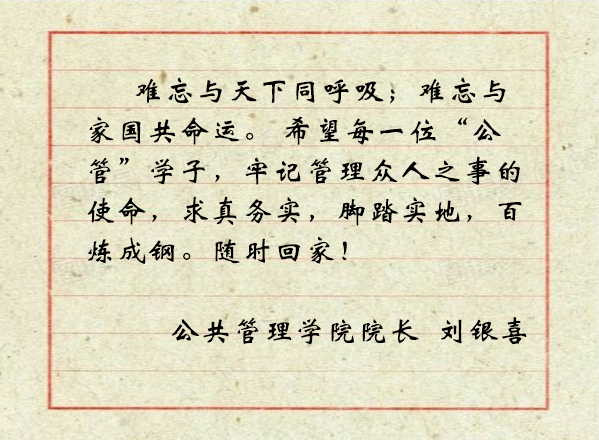 难忘与天下同呼吸；难忘与
家国共命运。希望每一位“公
管”学子，牢记管理众人之事的
使命，求真务实，脚踏实地，百
炼成钢。随时回家！
公共管理学院院长 刘银喜